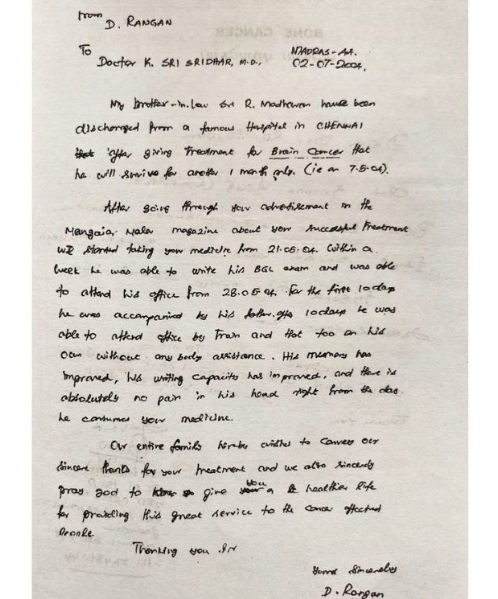 From
D. RANGAN
To
Doctor K. SRI SRIDHAR, M.D.,
MADRAS-AA.
02-07-2004.
My brother-in-law Sri R. Madhavan have been
discharged from a famous Hospital in CHENNAI
that after giving treatment for Brain Cancer that
he will survive for another 1 month only. (ie on 7.5.04).
After going through your advertisement in the
Mangaia Malar magazine about your successful treatment
we started taking your medicine from 21.05.04. Within a
week he was able to write his exam and was able
to attend his office from 28.05.04. For the first 10 days
he was accompanied by his father. after 10 days he was
able to attend office by Train and that too on his
own without any body assistance. His memory has
improved, his writing capacity has improved, and there is
absolutely no pain in his head right from the day
he consumes your medicine.
Our entire family hereby wishes to convey our
sincere thanks for your treatment and we also sincerely
pray god to give you a healthier life
for providing this great service to the cancer affected
people
Thanking you Sir
Yours Sincerely
D. Rangan